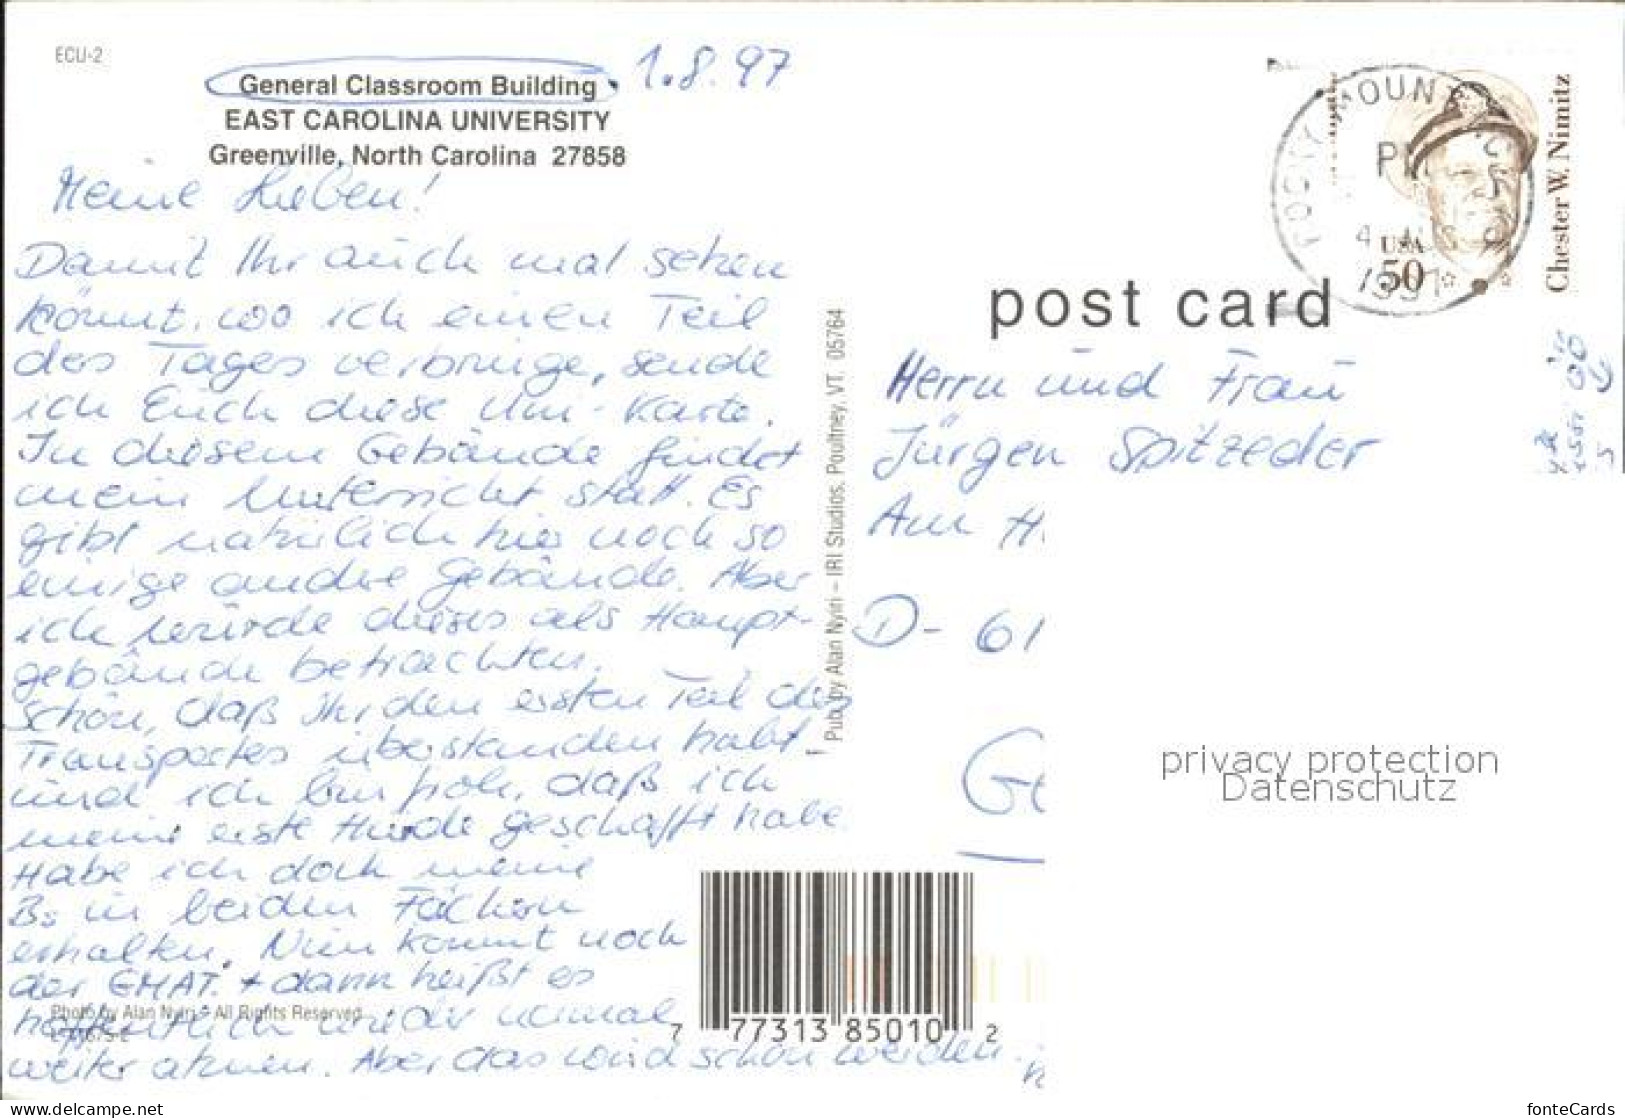 ECU-2
General Classroom Building • 1.8.97
EAST CAROLINA UNIVERSITY
Greenville, North Carolina 27858
Meine Lieben!
Damit Ihr auch mal sehen
könnt, wo ich einen Teil
des Tages verbringe, sende
ich Euch diese Uni-Karte.
In diesem Gebäude findet
mein Unterricht statt. Es
gibt natürlich hier noch so
einige andre Gebäude. Aber
ich würde dieses als Haupt-
gebäude betrachten.
Schön, daß Ihr den ersten Teil des
Transportes überstanden habt -
und ich bin froh, daß ich
meine erste Hürde geschafft habe.
Habe ich doch meine
Bs in beiden Fächern
erhalten. Nun kommt noch
der GMAT. + dann heißt es
hoffentlich wieder normal
weiter atmen. Aber das wird schon werden.
Photo by Alan Nyiri - All Rights Reserved
Pub. by Alan Nyiri – IRI Studios, Poultney, VT. 05764
7 77313 85010 2
post card
ROCKY MOUNT
USA
50
Chester W. Nimitz
1997
Herrn und Frau
Jürgen Spitzeder
Am H
D- 61
Ge
privacy protection
Datenschutz
www.delcampe.net
fonteCards